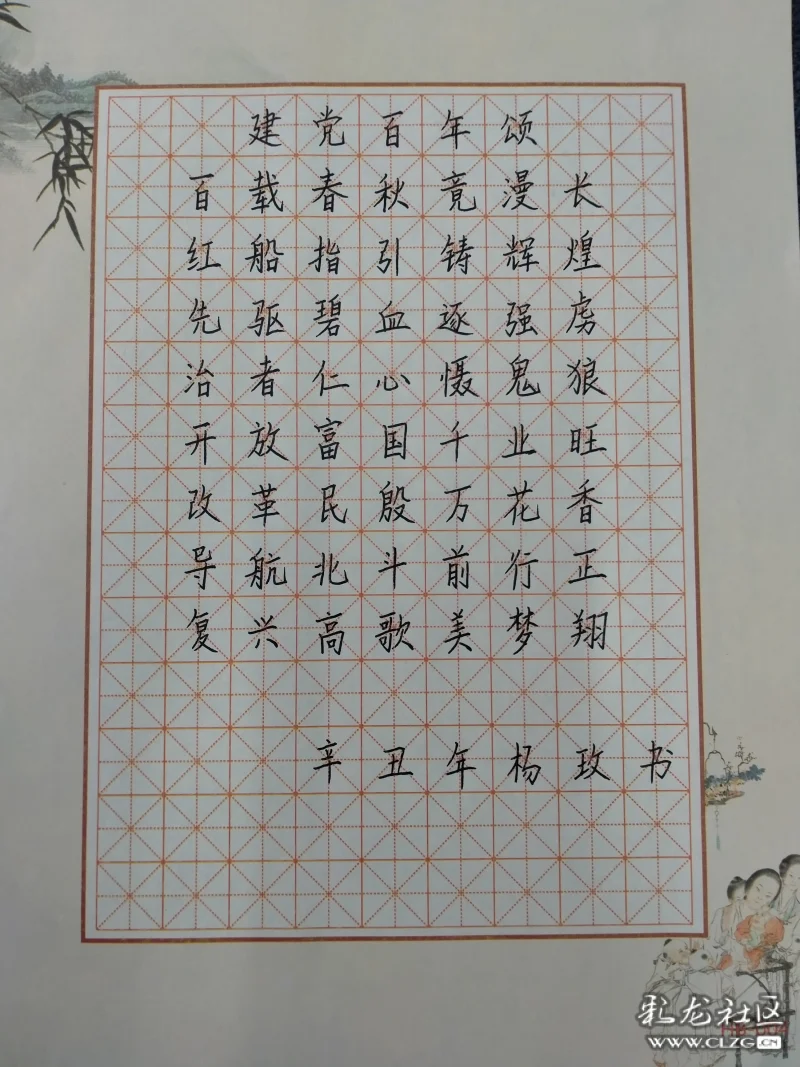 建党百年颂
百载春秋竟漫长
红船指引铸辉煌
先驱碧血逐强虏
治者仁心慑鬼狼
开放富国千业旺
改革民殷万花香
导航北斗前行正
复兴高歌美梦翔
辛丑年杨玫书
彩龙社区
WWW.CLZG.CN